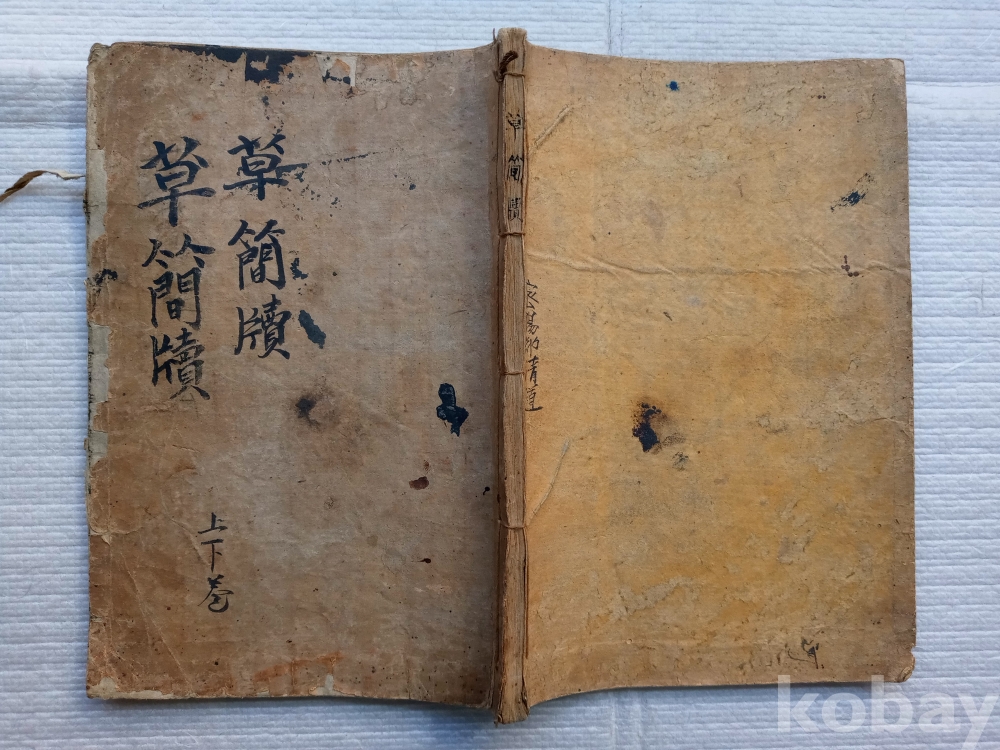 草簡牘
草簡牘
上下卷
草簡牘
kobay